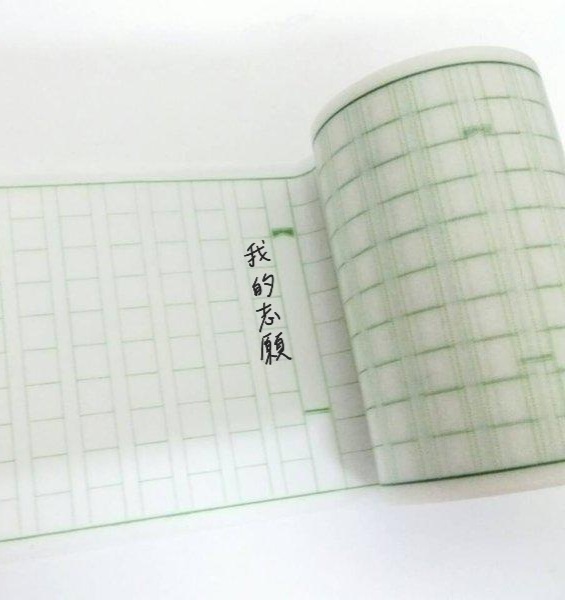 我的志願